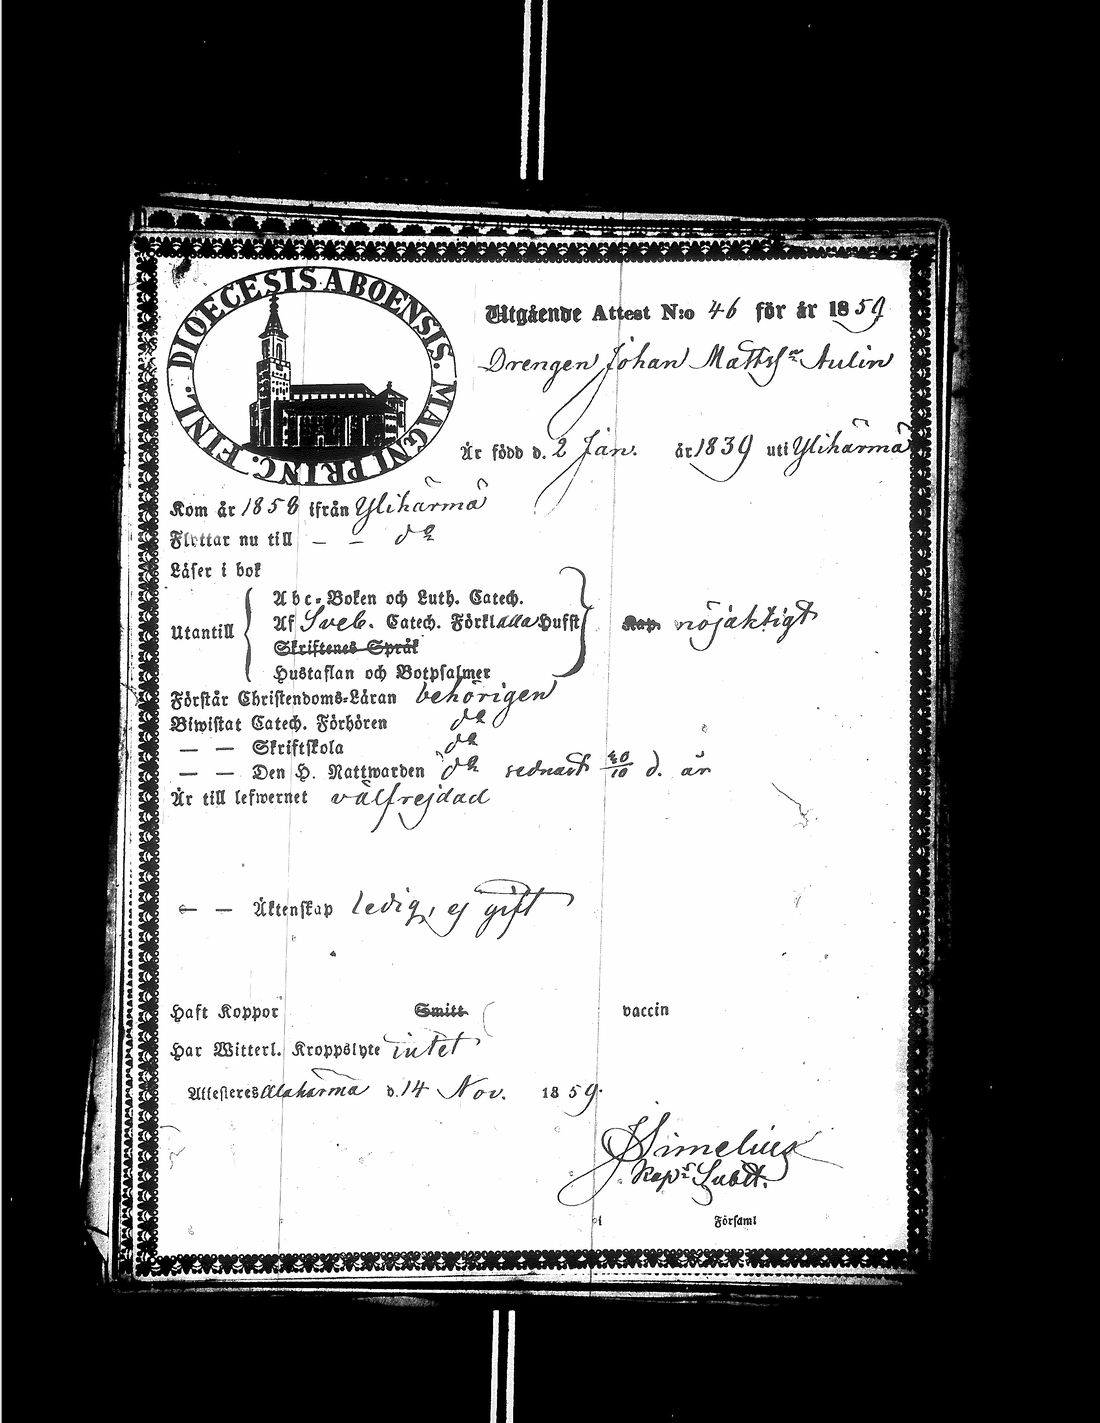 DIOECESIS ABOENSIS. MAGNI PRINC. FINL.
Utgående Attest N:o 46 för år 1859
Drengen Johan Mattsson Aulin
Är född d. 2 Jan. år 1839 uti Ylihärmä
Kom år 1858 ifrån Ylihärmä
Flyttar nu till — — do
Läser i bok
Abc-Boken och Luth. Catech.
Utantill Af Sveb. Catech. Förklada Hufst nöjaktigt
Skriftenes Språk
Hustaflan och Botpsalmer
Förstår Christendoms-Läran behörigen
Biwistat Catech. Förhören do
— — Skriftskola do
— — Den H. Nattwarden do sednast d. år
Är till lefwernet välfrejdad
— — Äktenskap ledig, ej gift
Haft Koppor Smitt vaccin
Har Witterl. Kroppslyte intet
Attesteres Alahärmä d. 14 Nov. 1859.
JSimelius
Kap. Subst.
i Församl